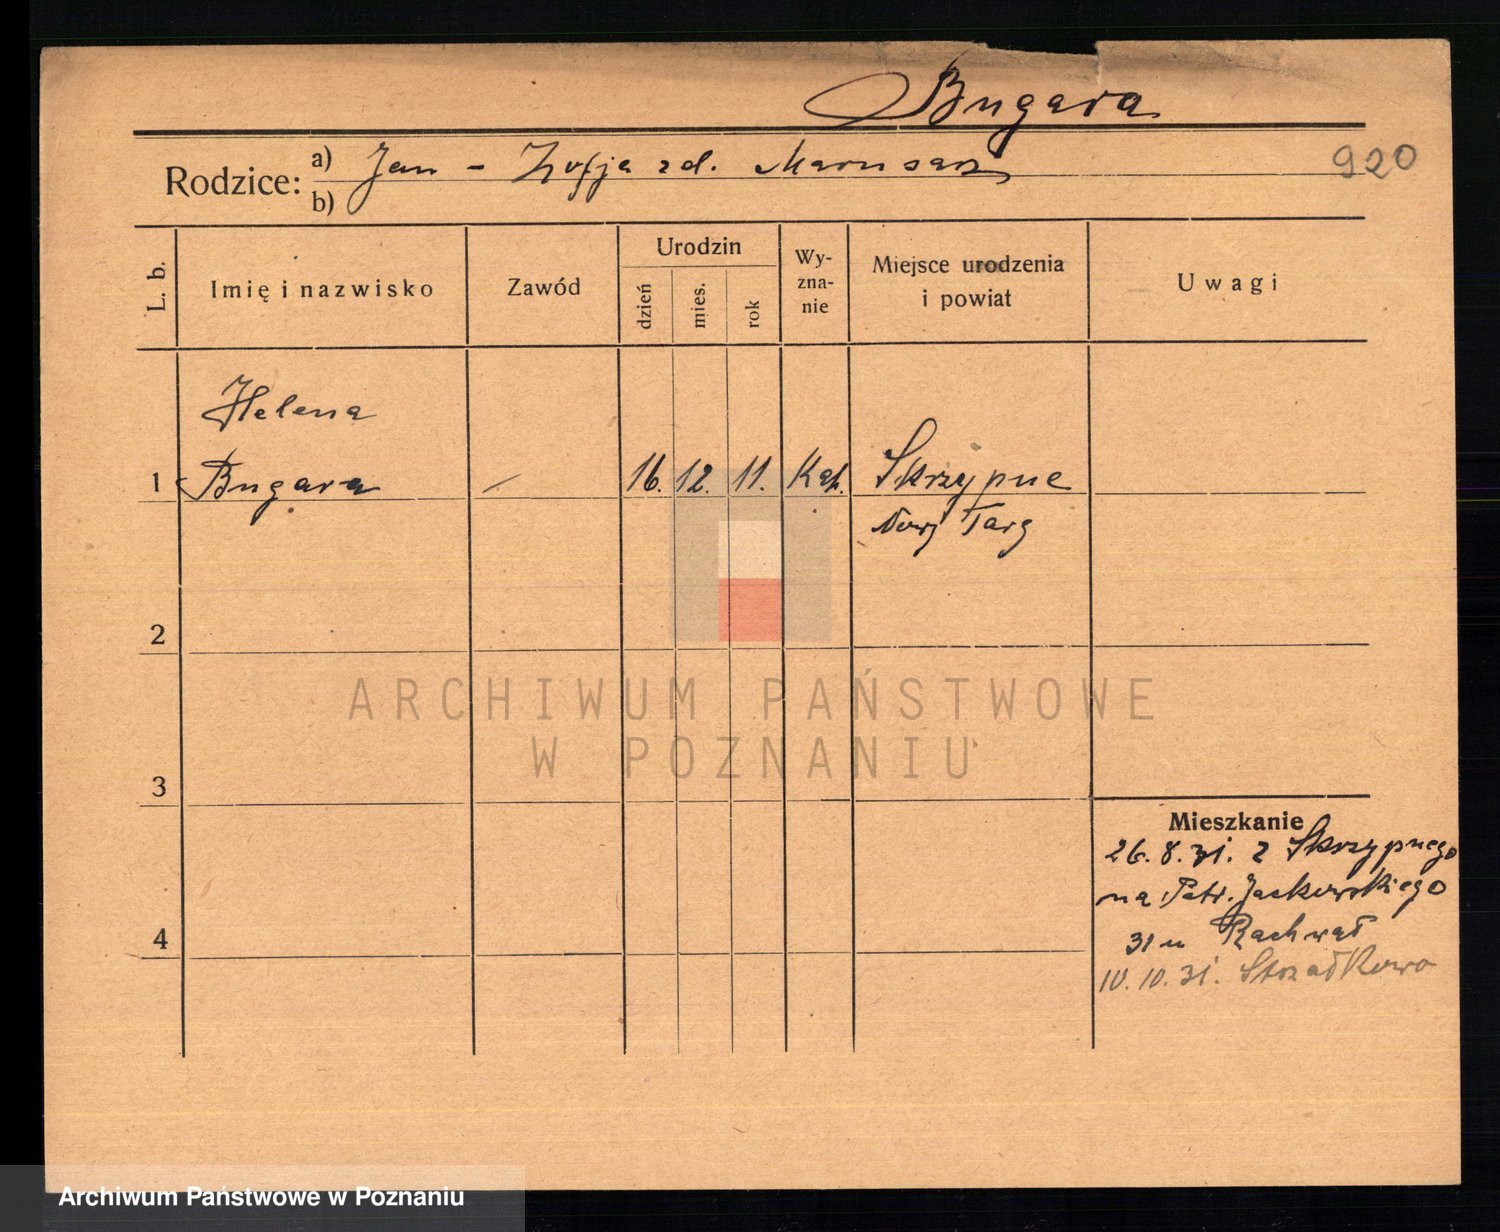 Bugara
Rodzice: a) Jan - Zofja zd. Marusarz
b)
920
L. b.
Imię i nazwisko
Zawód
Urodzin
dzień
mies.
rok
Wy-
zna-
nie
Miejsce urodzenia
i powiat
Uwagi
Helena
1 Bugara - 16. 12. 11. Kat. Skrzypne
Nowy Targ
2
3
4
Mieszkanie
26. 8. 31. z Skrzypnego
na Patr. Jackowskiego
31 u Rachwał
10. 10. 31.
ARCHIWUM PAŃSTWOWE
W POZNANIU
Archiwum Państwowe w Poznaniu